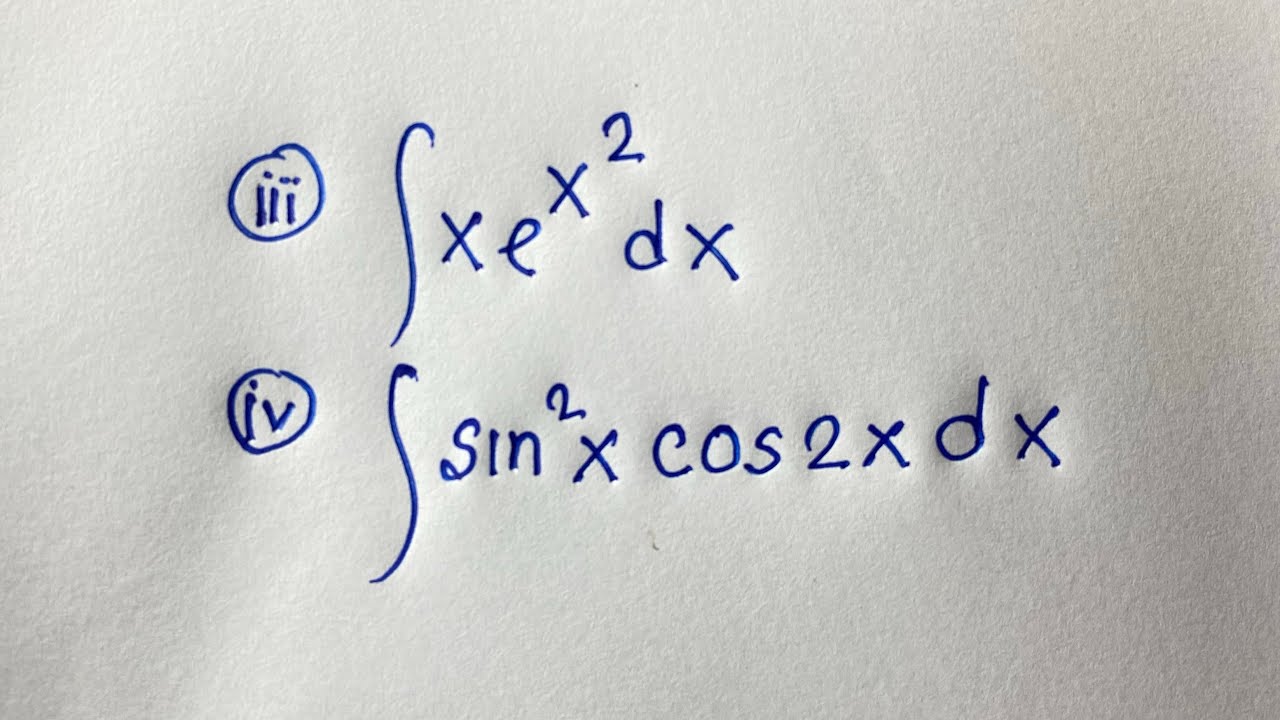 (iii) ∫ x e^{x^2} dx
(iv) ∫ sin^2 x cos 2x dx